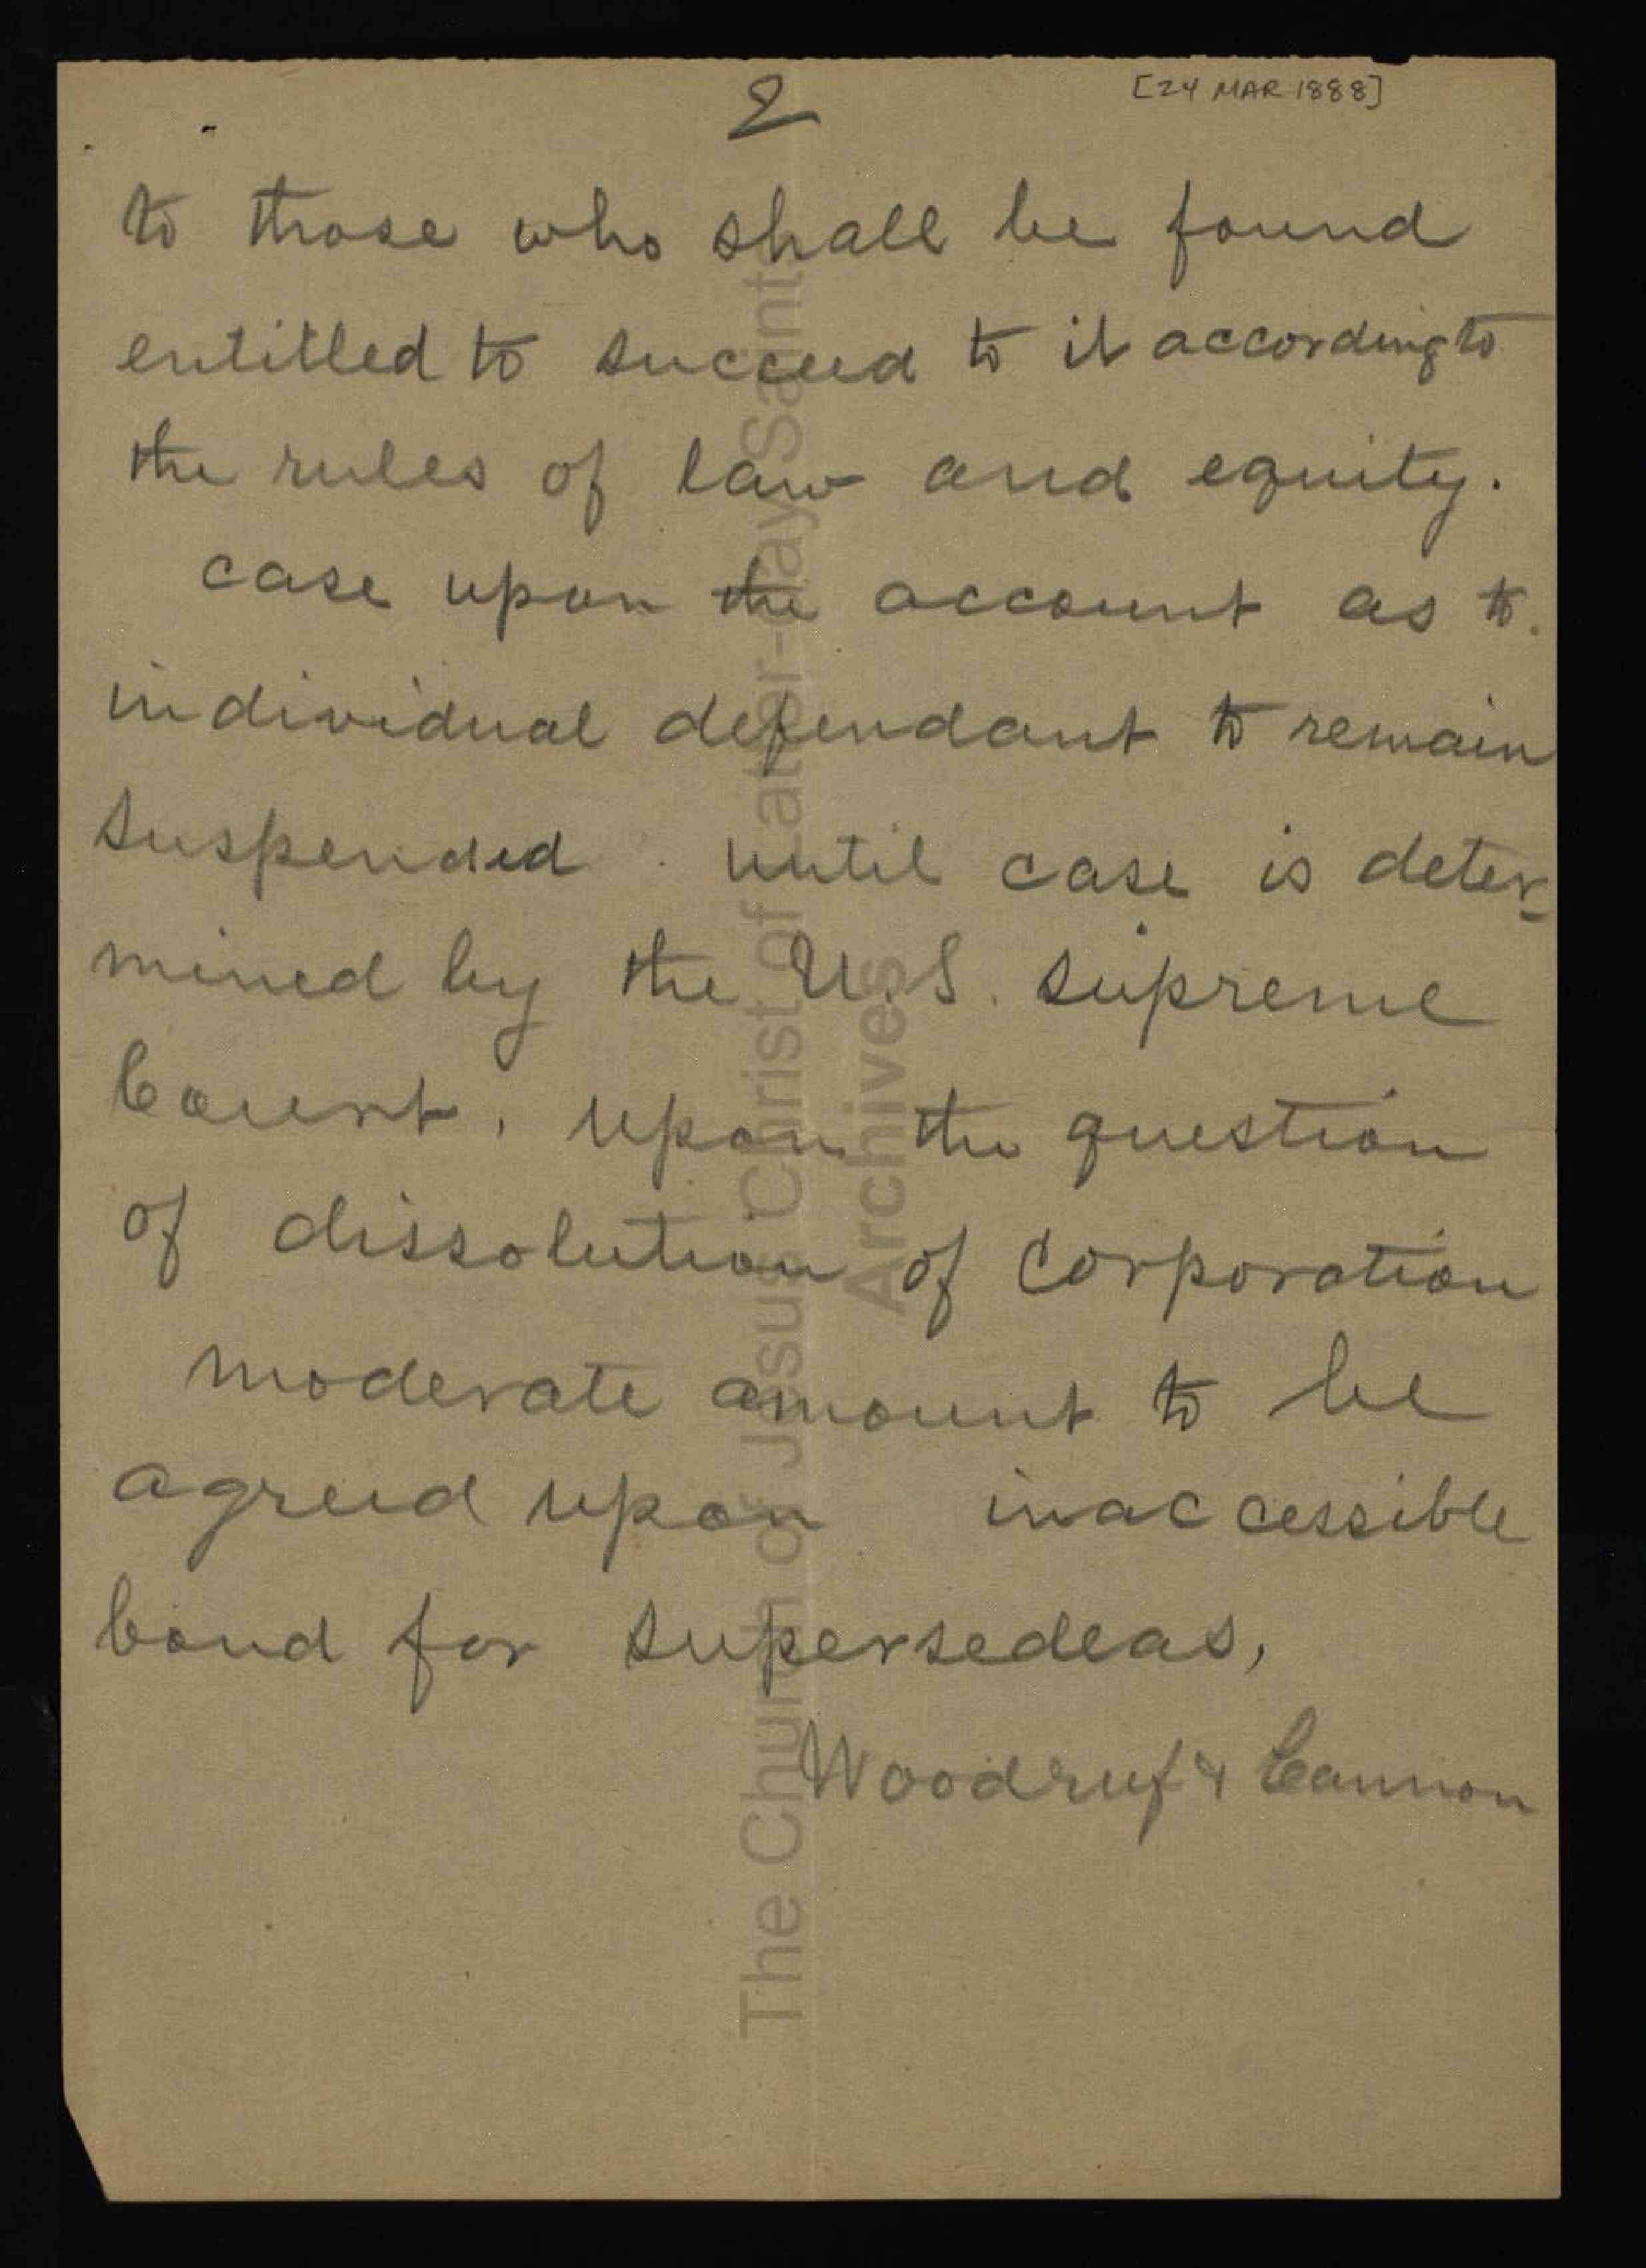 2
[24 MAR 1888]
to those who shall be found
entitled to succeed to it according to
the rules of law and equity.
case upon the account as to
individual defendant to remain
suspended until case is deter-
mined by the U.S. supreme
Court, upon the question
of dissolution of Corporation
moderate amount to be
agreed upon inaccessible
bond for supersedeas,
Woodruf & Cannon
The Church of Jesus Christ of Latter-day Saints
Archives